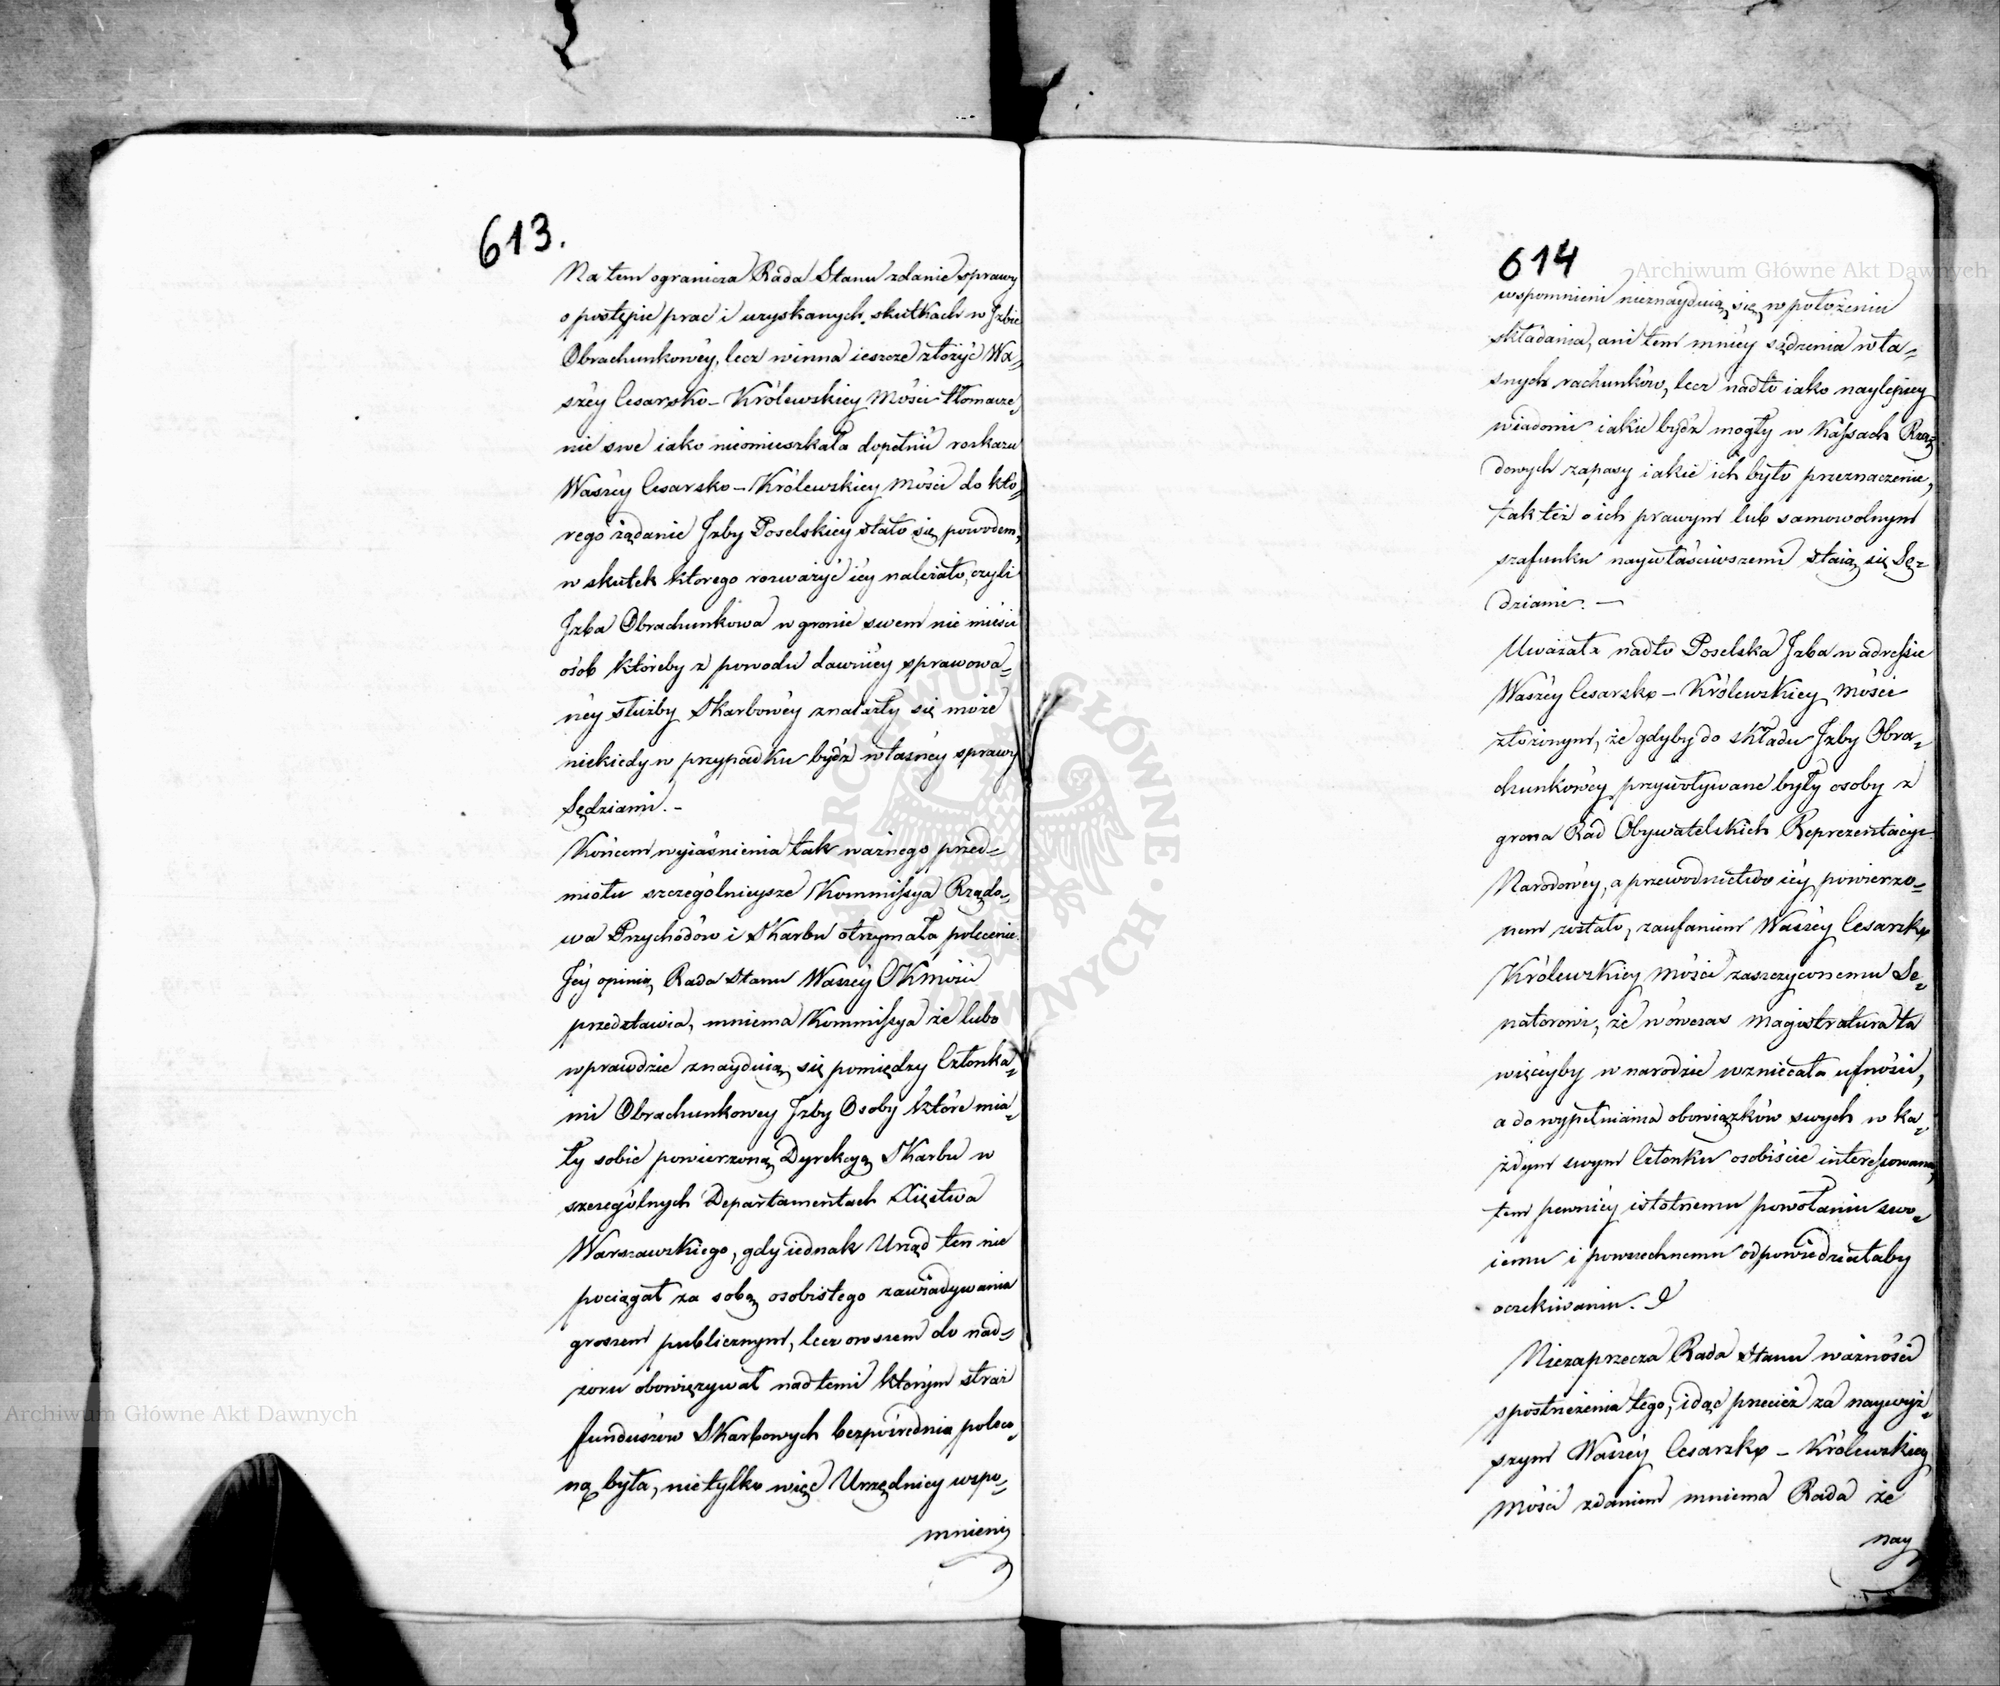 613.
Na tem ogranicza Rada Stanu zdanie sprawy
o postępie prac i uzyskanych skutkach w Jzbie
Obrachunkowéy, lecz winna ieszcze złożyć Wa-
széy Cesarsko-Królewskiey Mości tłomacze-
nie swe iako nieomieszkała dopełnić roskazu
Waszéy Cesarsko-Królewskiey Mości do któ-
rego żądanie Jzby Poselskiey stało się powodem,
w skutek którego rozważyć iéy należało, czyli
Jzba Obrachunkowa w gronie swem nie mieści
osób któreby z powodu dawniéy sprawowa-
néy służby Skarbowéy znalazły się może
niekiedy w przypadku bydź własnéy sprawy
Sędziami.-
Końcem wyiaśnienia tak ważnego przed-
miotu szczególnieysze Kommissya Rządo-
wa Przychodów i Skarbu otrzymała polecenie.
Jéy opinią Rada Stanu Waszéy CKMości
przedstawia, mniema Kommissya że lubo
wprawdzie znayduią się pomiędzy Członka-
mi Obrachunkowey Jzby Osoby które mia-
ły sobie powierzoną Dyrekcyą Skarbu w
szczególnych Departamentach Xięstwa
Warszawskiego, gdy iednak Urząd ten nie
pociągał za sobą osobistego zawiadywania
groszem publicznym, lecz owszem do nad-
zoru obowięzywał nad temi którym straż
funduszów Skarbowych bezpośrednia poleco-
ną była, nietylko więc Urzędnicy wspo-
mnieni
614
wspomnieni nieznayduią się w położeniu
składania, ani tem mniéy sądzenia wła-
snych rachunków, lecz nadto iako naylepiey
wiadomi iakie bydź mogły w Kassach Rzą-
dowych zapasy iakie ich było przeznaczenie,
tak też o ich prawym lub samowolnym
szafunku naywłaściwszemi staią się Sę-
dziami. -
Uważała nadto Poselska Jzba w adressie
Waszéy Cesarsko-Królewskiey Mości
złożonym, że gdyby do składu Jzby Obra-
chunkowéy przywoływane były osoby z
grona Rad Obywatelskich Reprezentacyi
Narodowéy, a przewodnictwo iéy powierzo-
nem zostało, zaufaniem Waszéy Cesarsko
Królewskiey Mości zaszczyconemu Se-
natorowi, że wówczas Magistratura ta
więcéyby w narodzie wzniecała ufności,
a do wypełniania obowiązków swych w ka-
żdym swym Członku osobiście interessowana,
tem pewniéy istotnemu powołaniu swo-
iemu i powszechnemu odpowiedziałaby
oczekiwaniu.
Niezaprzecza Rada Stanu ważności
spostrzeżenia tego, idąc przecież za naywyż-
szym Waszéy Cesarsko - Królewskiey
Mości zdaniem mniema Rada że
nay
Archiwum Główne Akt Dawnych
Archiwum Główne Akt Dawnych
ARCHIWUM GŁÓWNE AKT DAWNYCH